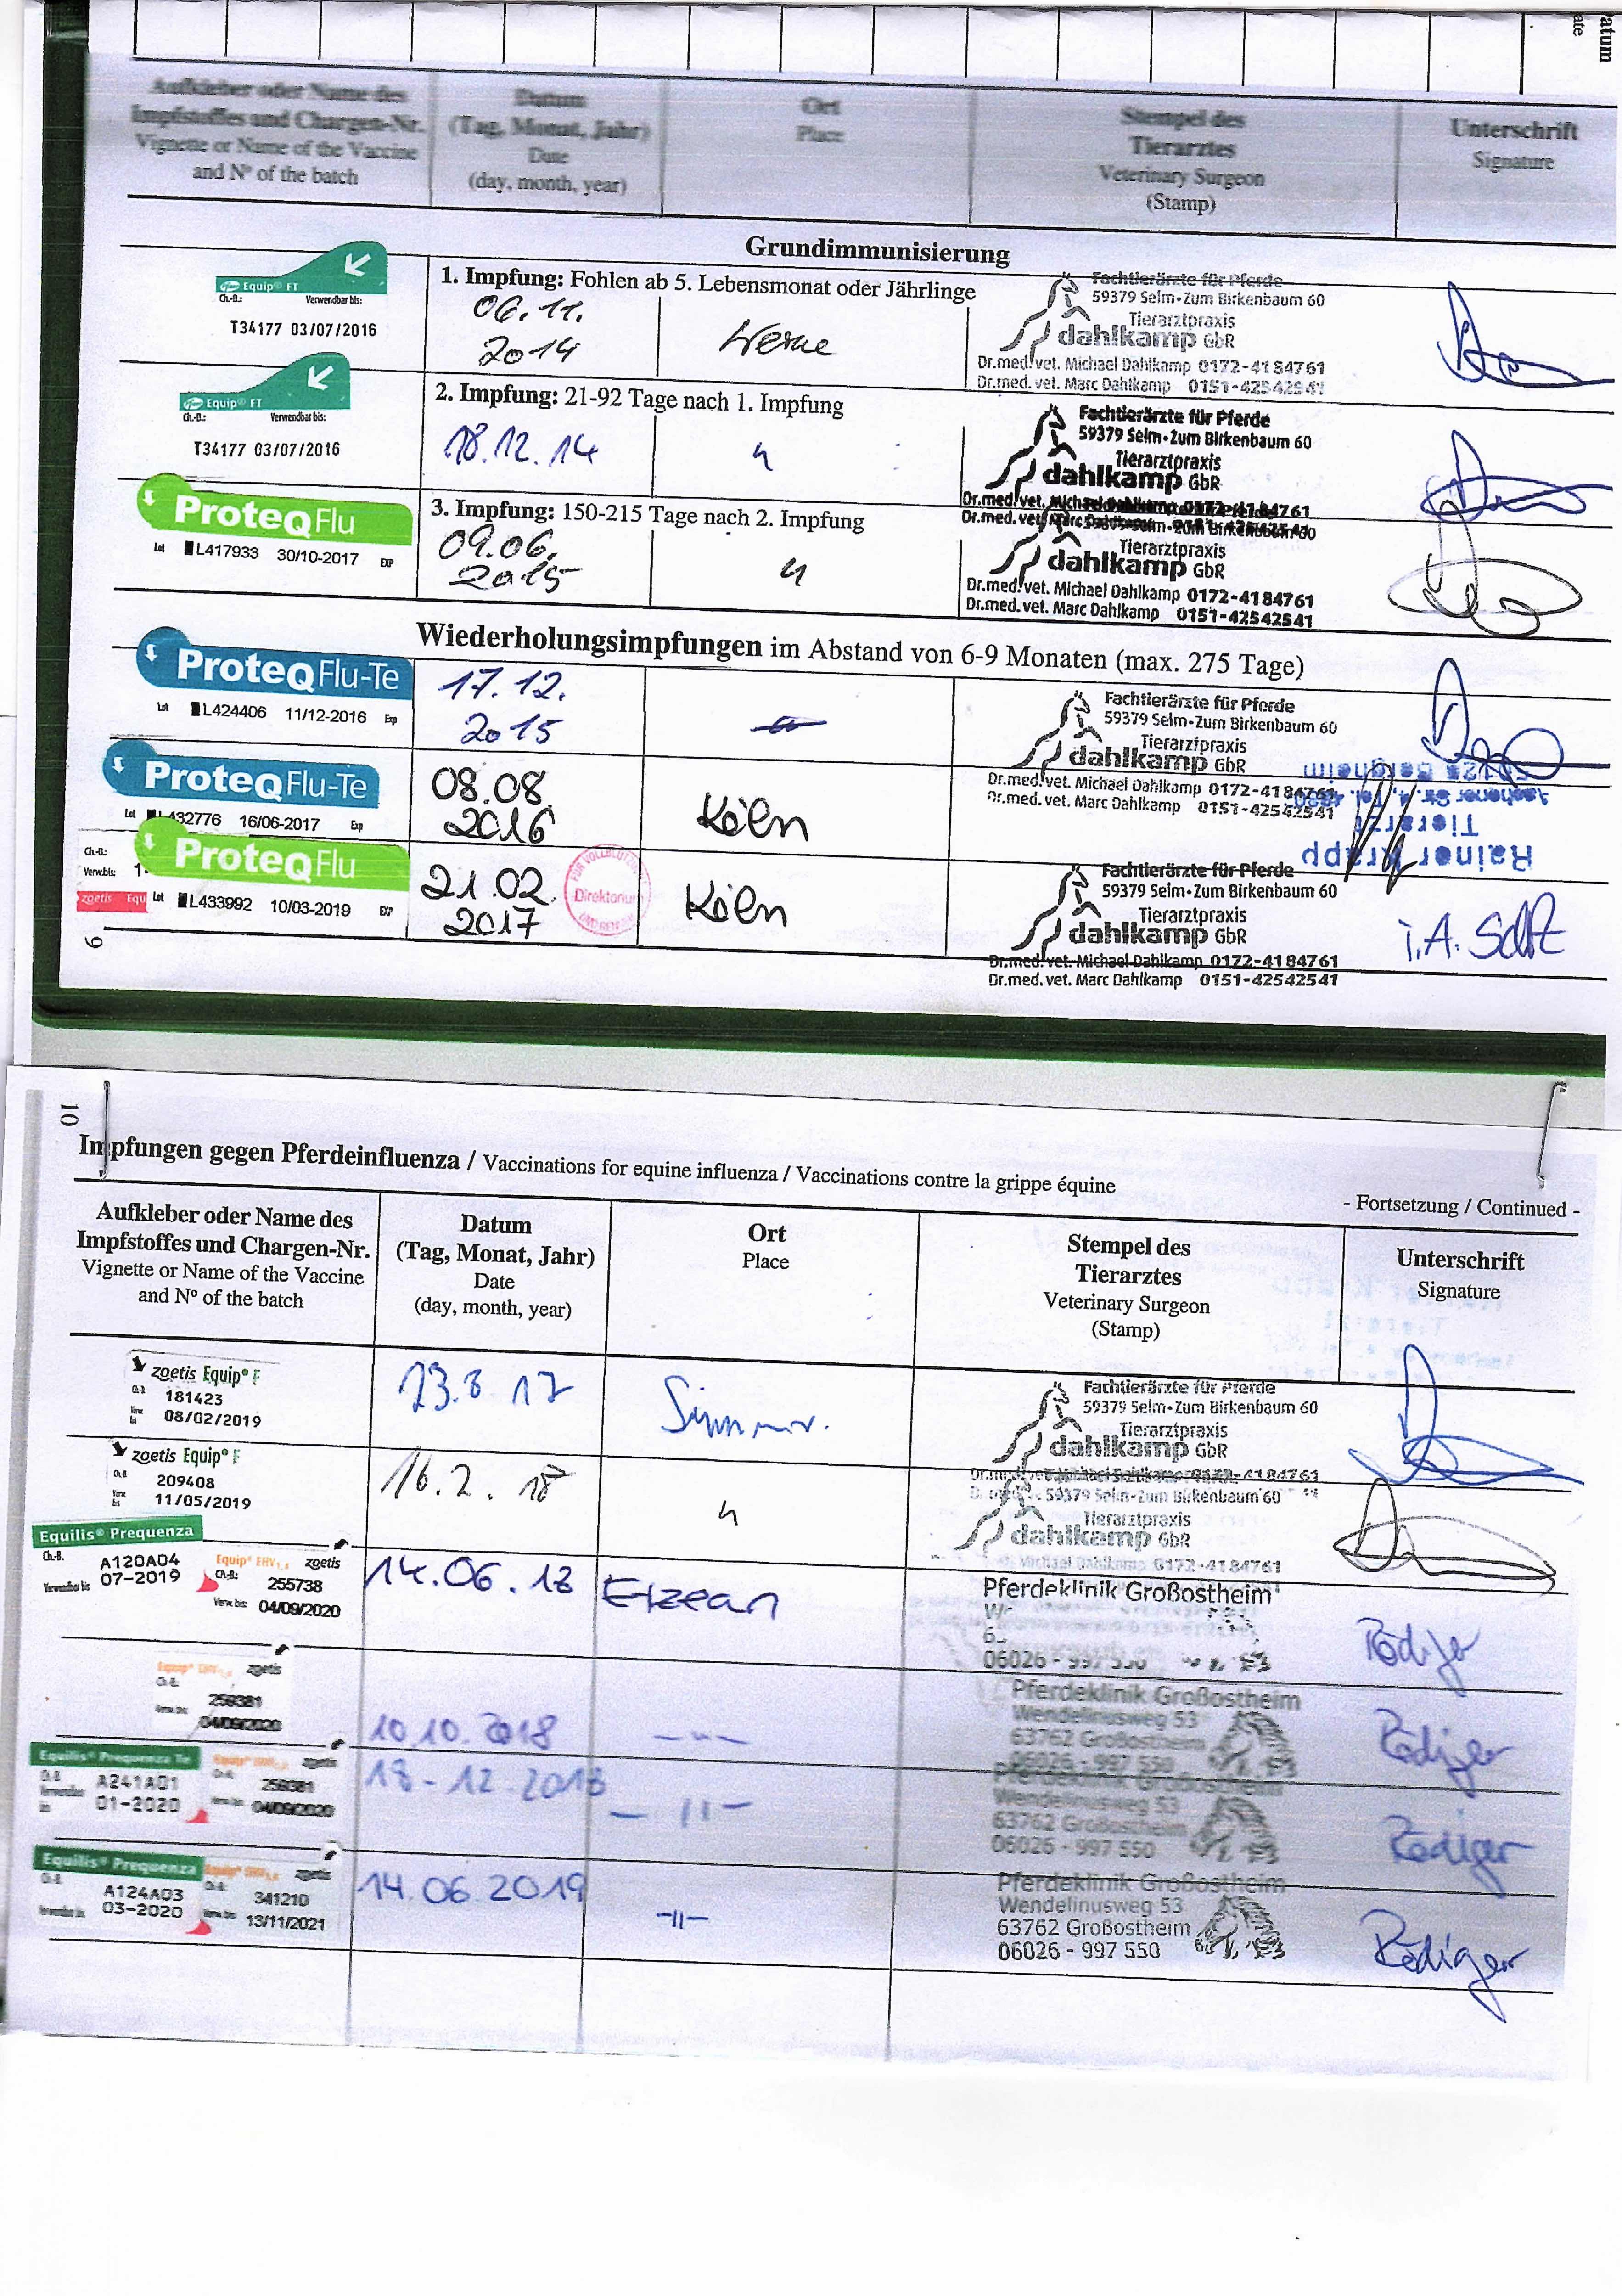 Datum
ate
Aufkleber oder Name des
Impfstoffes und Chargen-Nr.
Vignette or Name of the Vaccine
and Nº of the batch
Datum
(Tag, Monat, Jahr)
Date
(day, month, year)
Ort
Place
Stempel des
Tierarztes
Veterinary Surgeon
(Stamp)
Unterschrift
Signature
Grundimmunisierung
Equip® FT
Ch.-B.: Verwendbar bis:
T34177 03/07/2016
1. Impfung: Fohlen ab 5. Lebensmonat oder Jährlinge
06.11.
2014
Werne
Fachtierärzte für Pferde
59379 Selm-Zum Birkenbaum 60
Tierarztpraxis
dahlkamp GbR
Dr.med.vet. Michael Dahlkamp 0172-4184761
Dr.med.vet. Marc Dahlkamp 0151-42542541
Equip® FT
Ch.-B.: Verwendbar bis:
T34177 03/07/2016
2. Impfung: 21-92 Tage nach 1. Impfung
18.12.14
"
Fachtierärzte für Pferde
59379 Selm-Zum Birkenbaum 60
Tierarztpraxis
dahlkamp GbR
Dr.med.vet. Michael Dahlkamp 0172-4184761
Dr.med.vet. Marc Dahlkamp 0151-42542541
ProteqFlu
Lot L417933 30/10-2017 EXP
3. Impfung: 150-215 Tage nach 2. Impfung
09.06.
2015
"
Tierarztpraxis
dahlkamp GbR
Dr.med.vet. Michael Dahlkamp 0172-4184761
Dr.med.vet. Marc Dahlkamp 0151-42542541
Wiederholungsimpfungen im Abstand von 6-9 Monaten (max. 275 Tage)
ProteqFlu-Te
Lot L424406 11/12-2016 Exp
17.12.
2015
Fachtierärzte für Pferde
59379 Selm-Zum Birkenbaum 60
Tierarztpraxis
dahlkamp GbR
Dr.med.vet. Michael Dahlkamp 0172-4184761
Dr.med.vet. Marc Dahlkamp 0151-42542541
ProteqFlu-Te
Lot L432776 16/06-2017 Exp
08.08.
2016
Köln
Rainer Krapp
Tierarzt
Bergheim
Ch.-B.:
Verw.bis: 1-
zoetis Equ
ProteqFlu
Lot L433992 10/03-2019 EXP
21.02.
2017
Direktorium
Köln
Fachtierärzte für Pferde
59379 Selm-Zum Birkenbaum 60
Tierarztpraxis
dahlkamp GbR
Dr.med.vet. Michael Dahlkamp 0172-4184761
Dr.med.vet. Marc Dahlkamp 0151-42542541
i.A.
9
10
Impfungen gegen Pferdeinfluenza / Vaccinations for equine influenza / Vaccinations contre la grippe équine
- Fortsetzung / Continued -
Aufkleber oder Name des
Impfstoffes und Chargen-Nr.
Vignette or Name of the Vaccine
and Nº of the batch
Datum
(Tag, Monat, Jahr)
Date
(day, month, year)
Ort
Place
Stempel des
Tierarztes
Veterinary Surgeon
(Stamp)
Unterschrift
Signature
zoetis Equip® F
181423
08/02/2019
23.8.17
Fachtierärzte für Pferde
59379 Selm-Zum Birkenbaum 60
Tierarztpraxis
dahlkamp GbR
Dr.med.vet. Michael Dahlkamp 0172-4184761
zoetis Equip® F
209408
11/05/2019
16.2.18
"
59379 Selm-Zum Birkenbaum 60
Tierarztpraxis
dahlkamp GbR
Michael Dahlkamp 0172-4184761
Equilis® Prequenza
Ch.-B. A120A04
Verwendbar bis 07-2019
Equip® EHV1,4 zoetis
Ch.-B.: 255738
Verw. bis: 04/09/2020
14.06.18
Etzean
Pferdeklinik Großostheim
06026 - 997 550
Rödiger
Equip® EHV1,4 zoetis
04/09/2020
10.10.2018
- " -
Pferdeklinik Großostheim
Wendelinusweg 53
63762 Großostheim
06026 - 997 550
Rödiger
Equilis® Prequenza Te
A241A01
01-2020
zoetis
04/09/2020
18-12 2018
- 11 -
Pferdeklinik Großostheim
Wendelinusweg 53
63762 Großostheim
06026 - 997 550
Rödiger
Equilis® Prequenza
A124A03
03-2020
zoetis
341210
13/11/2021
14.06.2019
-11-
Pferdeklinik Großostheim
Wendelinusweg 53
63762 Großostheim
06026 - 997 550
Rödiger